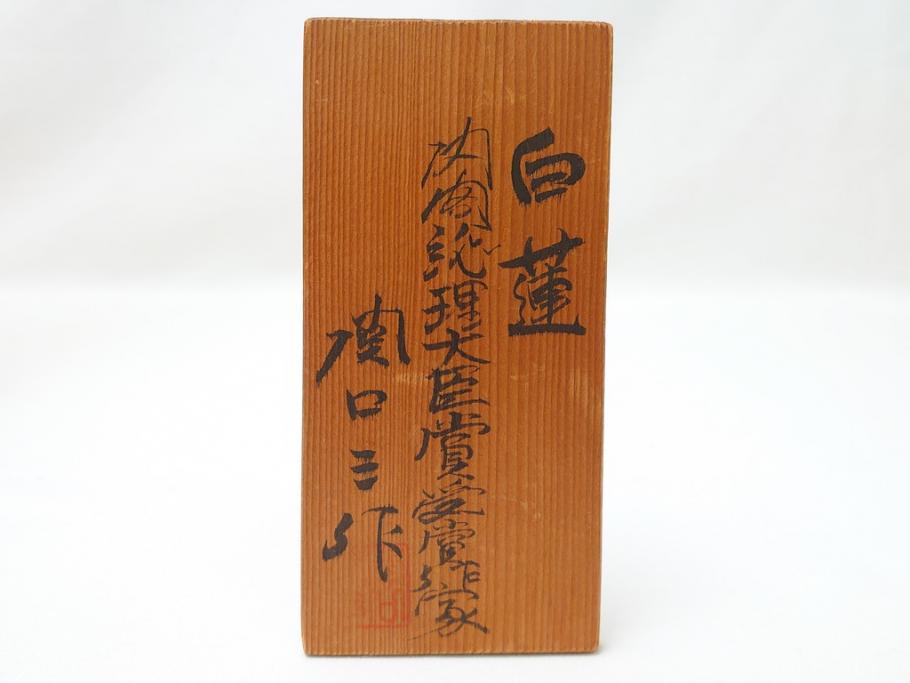 白蓮
内閣総理大臣賞受賞作家
関口三作